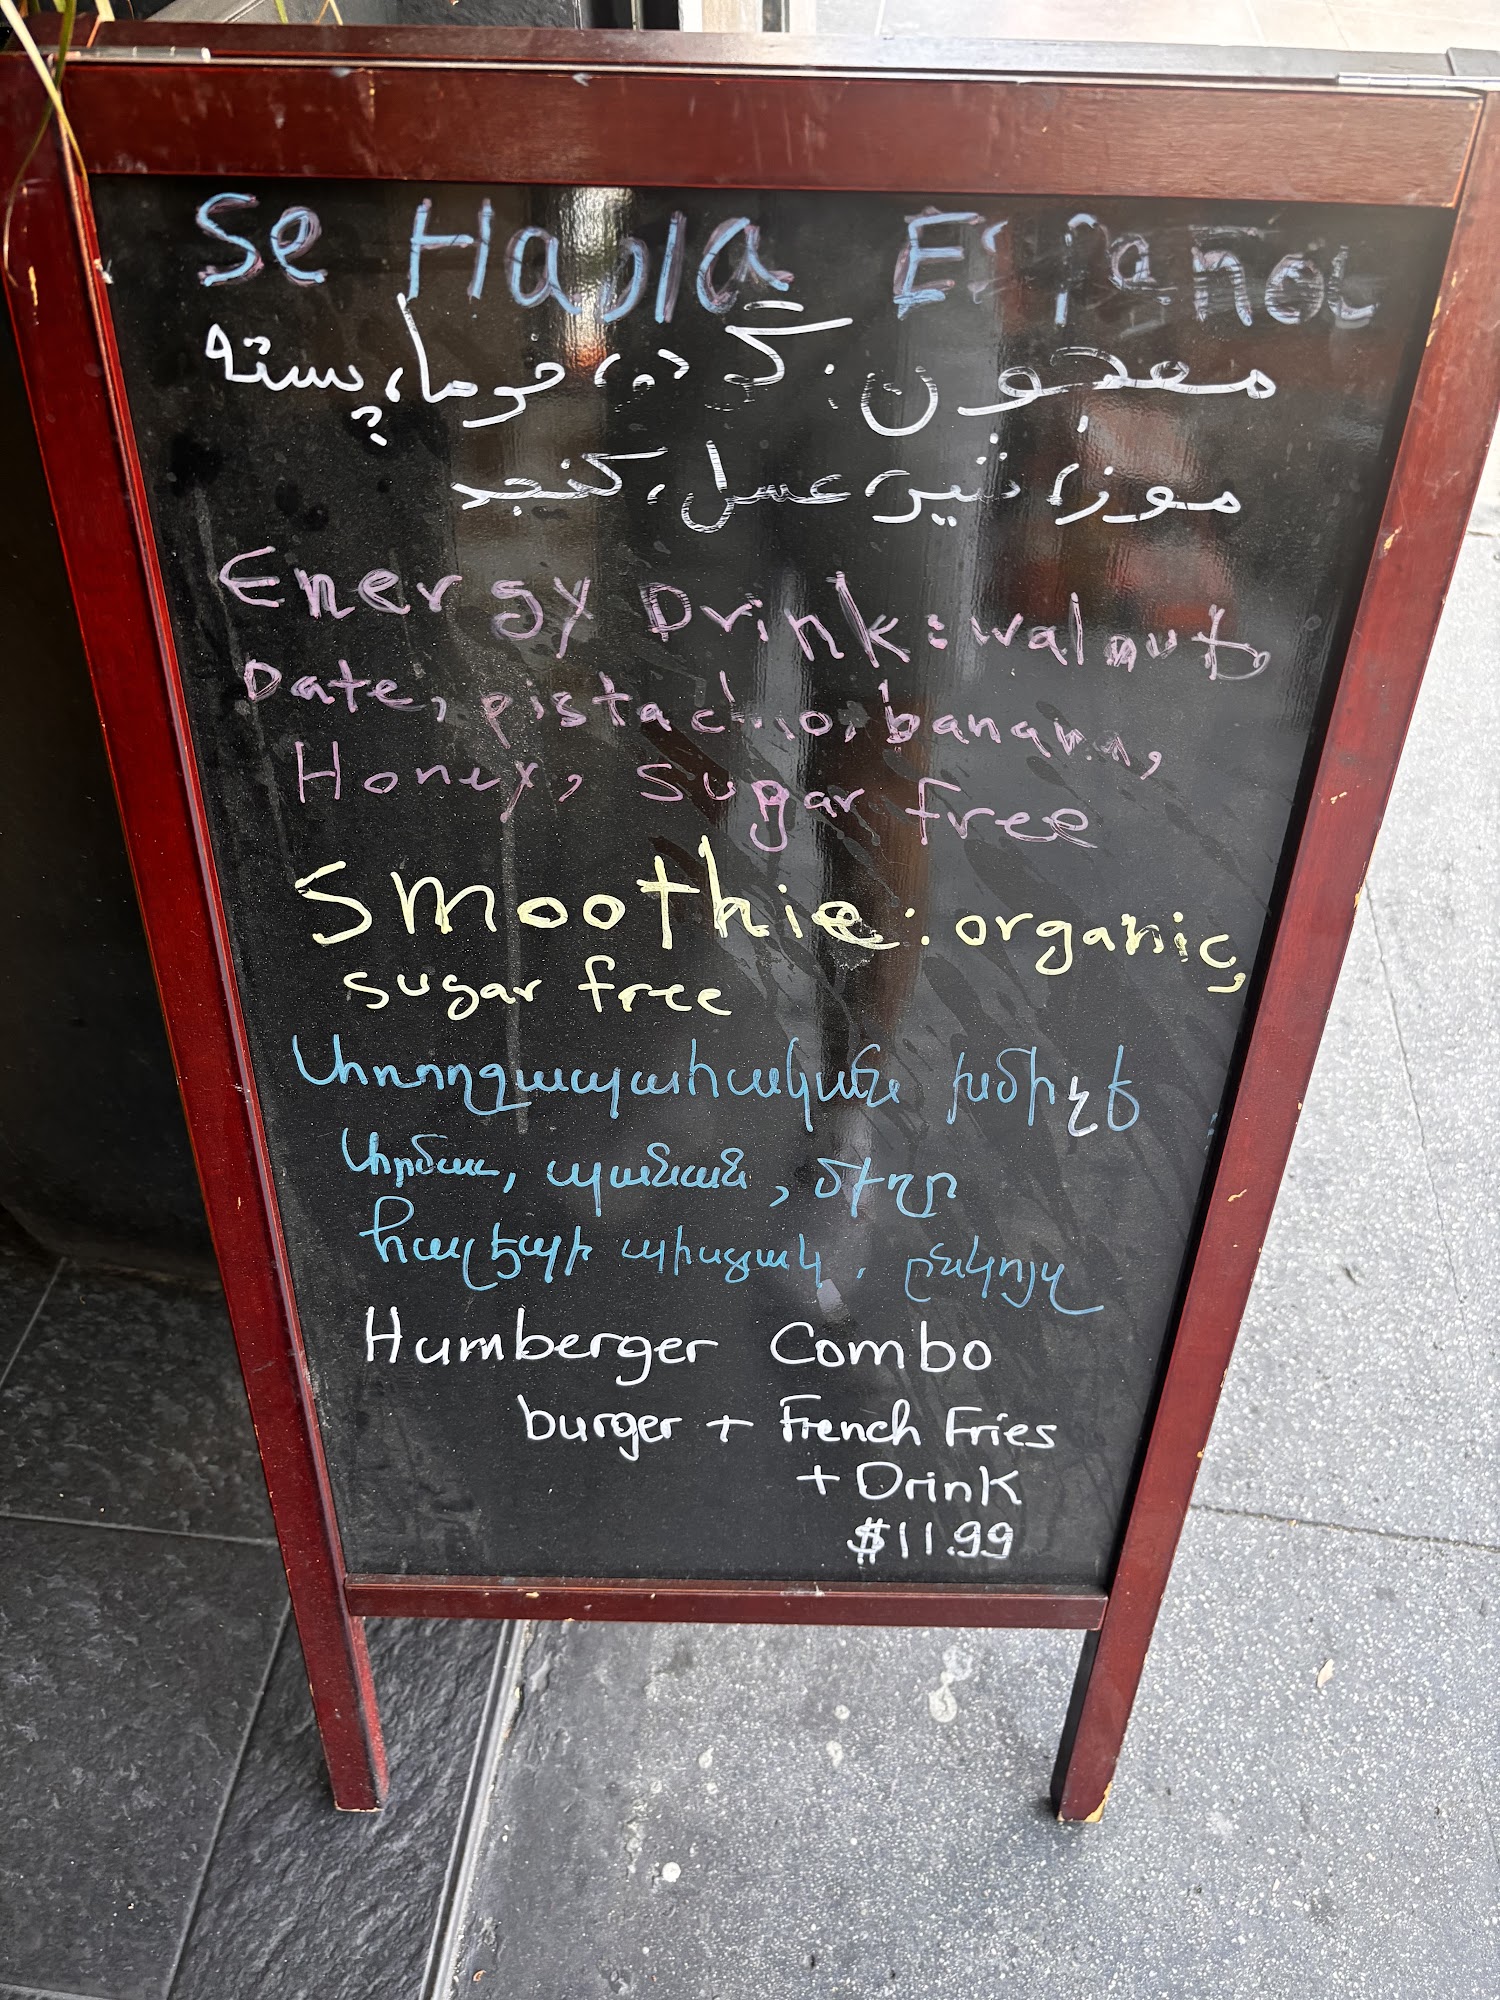 Se Habla Español
معجون: گردو، خرما، پسته
موز، شیر، عسل، کنجد
Energy Drink: walnut
Date, pistachio, banana,
Honey, sugar free
Smoothie: organic,
sugar free
Առողջապահական խմիչք
Արմաւ, պանան, մեղր
հալեպի պիստակ, ընկոյզ
Humberger Combo
burger + French Fries
+ Drink
$11.99